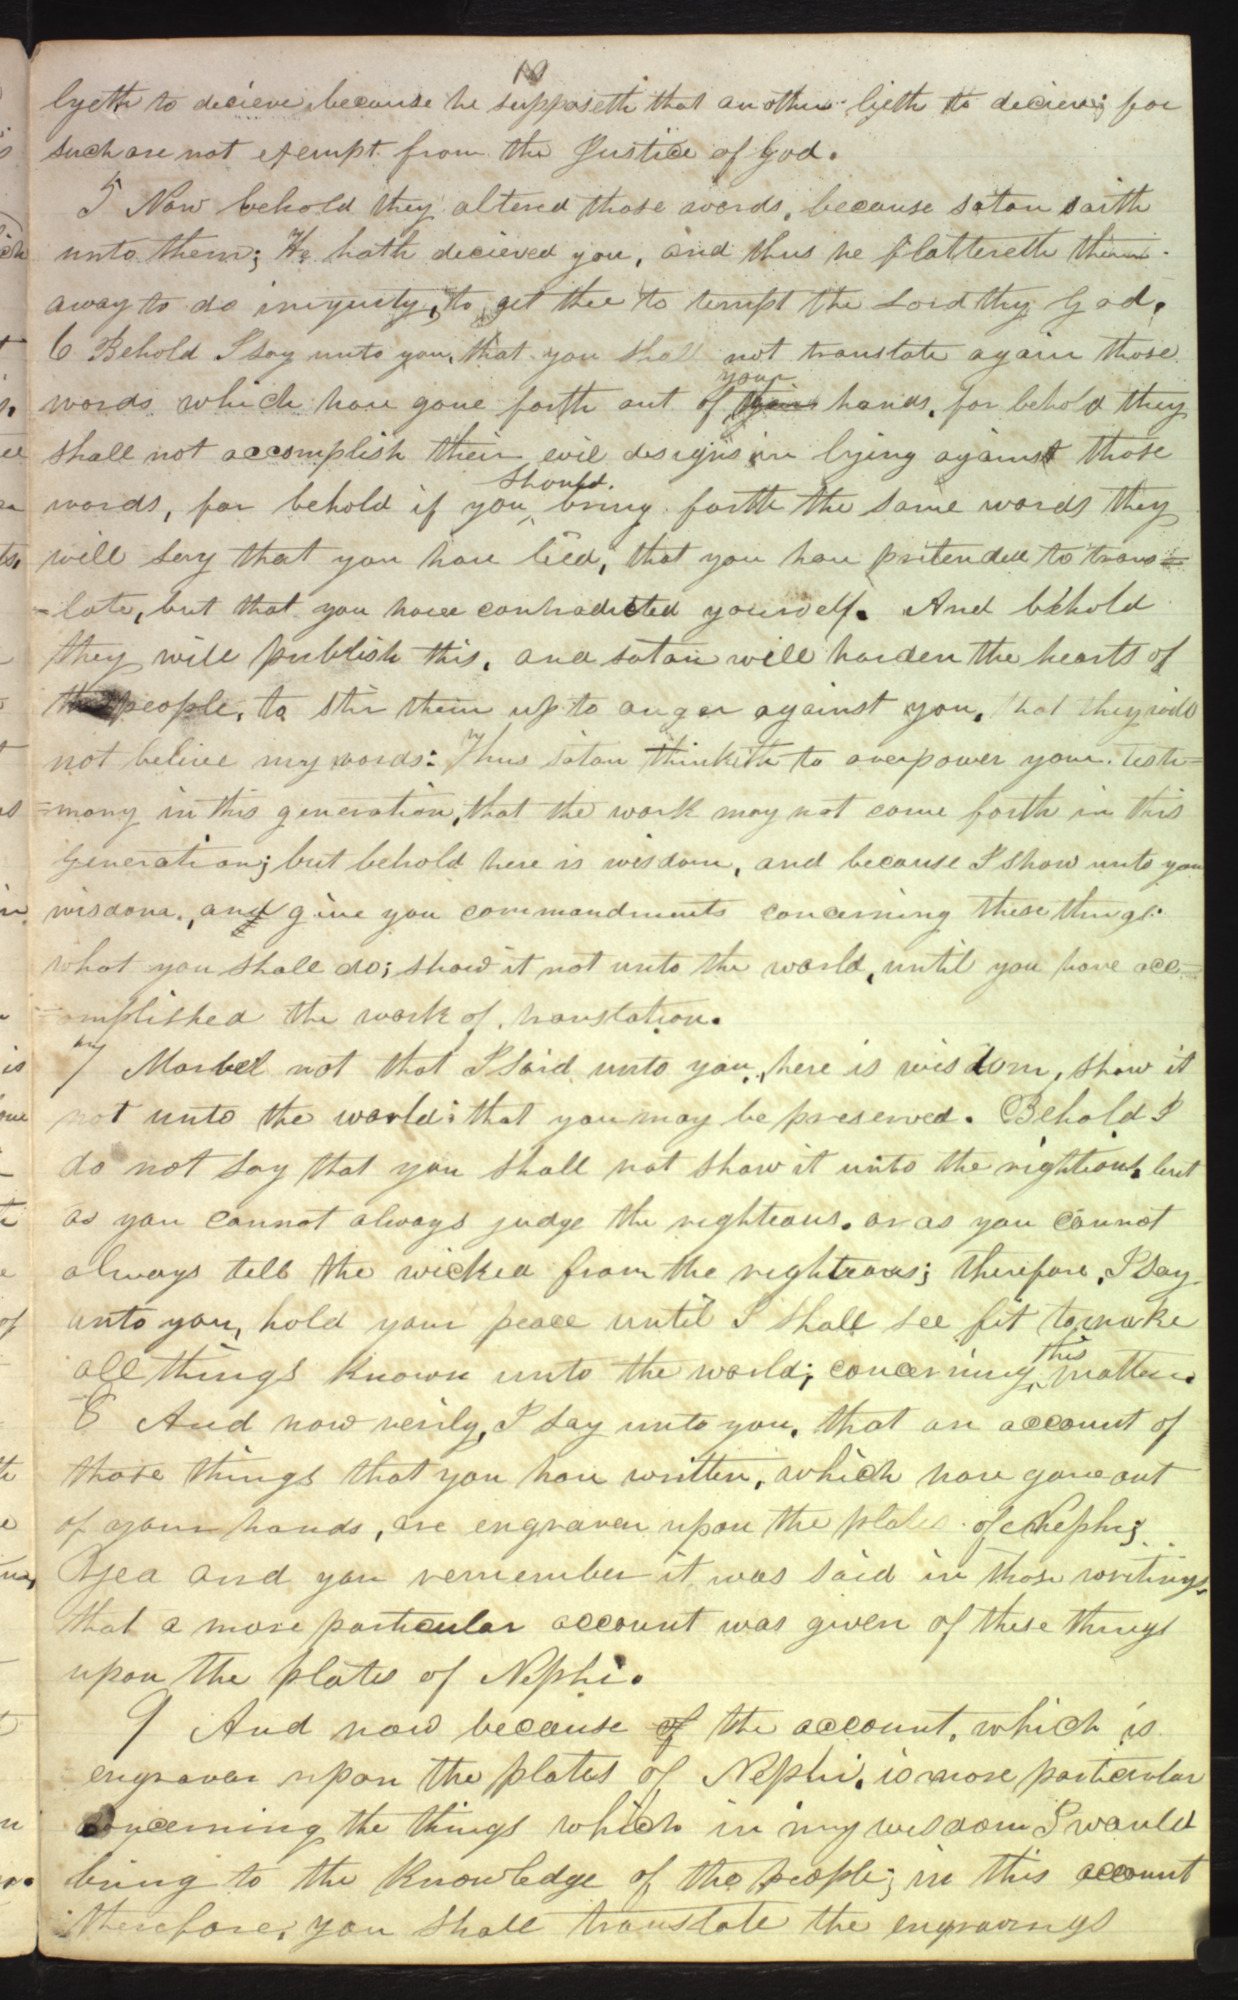 10
lyeth to decieve, because he supposeth that another lieth to decieve; for
such are not exempt from the Justice of God.
5 Now behold they altered those words, because satan saith
unto them; He hath decieved you, and thus he flattereth them
away to do iniquity, to get thee to tempt the Lord thy God.
6 Behold I say unto you, that you shall not translate again those
words which have gone forth out of your hands, for behold they
shall not accomplish their evil designs in lying against those
words, for behold if you should bring forth the same words they
will say that you have lied, that you have pretended to trans=
=late, but that you have contradicted yourself. And behold
they will publish this, and satan will harden the hearts of
the people, to stir them up to anger against you, that they will
not believe my words: Thus satan thinketh to overpower your testi=
=mony in this generation, that the work may not come forth in this
generation; but behold here is wisdom, and because I show unto you
wisdom, and give you commandments concerning these things
what you shall do; show it not unto the world, until you have acc=
=omplished the work of translation.
7 Marvel not that I said unto you, here is wisdom, show it
not unto the world: that you may be preserved. Behold I
do not say that you shall not show it unto the rightious, but
as you cannot always judge the righteous. or as you cannot
always tell the wicked from the righteous; therefore, I say
unto you, hold your peace until I shall see fit to make
all things known unto the world; concerning this matter.
8 And now verily, I say unto you, that an account of
those things that you have written, which have gone out
of your hands, are engraven upon the plates of Nephi;
Yea and you remember it was said in those writings,
that a more particular account was given of these things
upon the plates of Nephi.
9 And now because of the account, which is
engraven upon the plates of Nephi, is more particular
concerning the things which in my wisdom I would
bring to the knowledge of the people; in this account
therefore, you shall translate the engravings